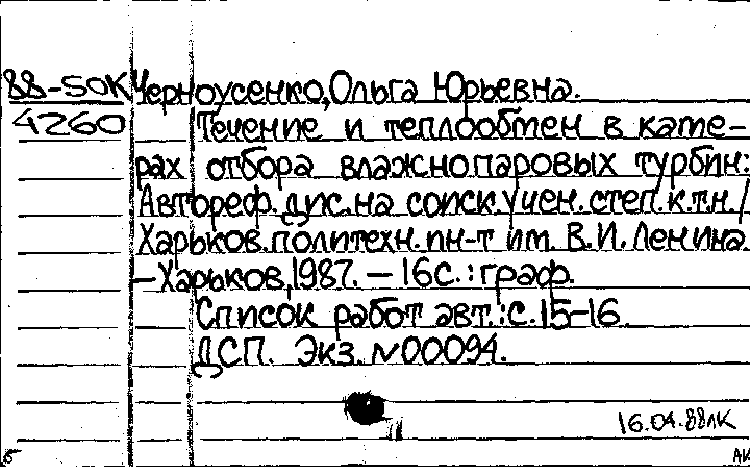 88-50К Черноусенко, Ольга Юрьевна.
4260 Течение и теплообмен в каме-
рах отбора влажнопаровых турбин:
Автореф. дис. на соиск. учен. степ. к.т.н. /
Харьков. политехн. ин-т им. В.И. Ленина.
–Харьков, 1987. – 16с.: граф.
Список работ авт.: с. 15–16.
ДСП. Экз. №00094.
16.04.88